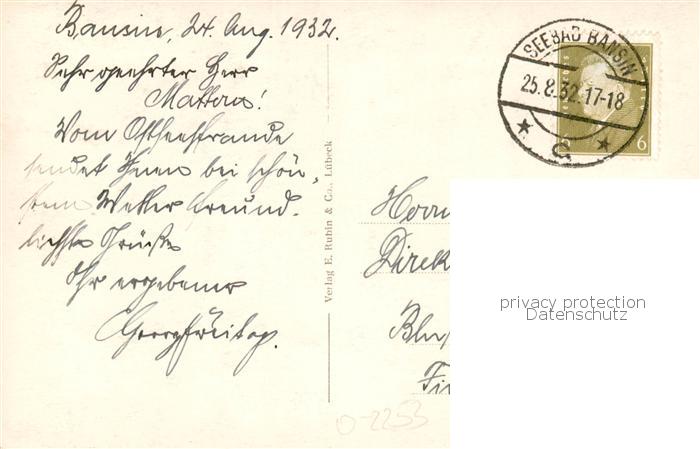 Bansin, 24. Aug. 1932.
Sehr geehrter Herr
Mattern!
Vom Ostseestrande
sendet Ihnen bei schön-
stem Wetter freund-
lichste Grüße
Ihr ergebener
Georg Freitag.
Verlag E. Rubin & Co., Lübeck
SEEBAD BANSIN
25.8.32.17-18
6
Herrn
Direk
Bln/
privacy protection
Datenschutz
0-2253